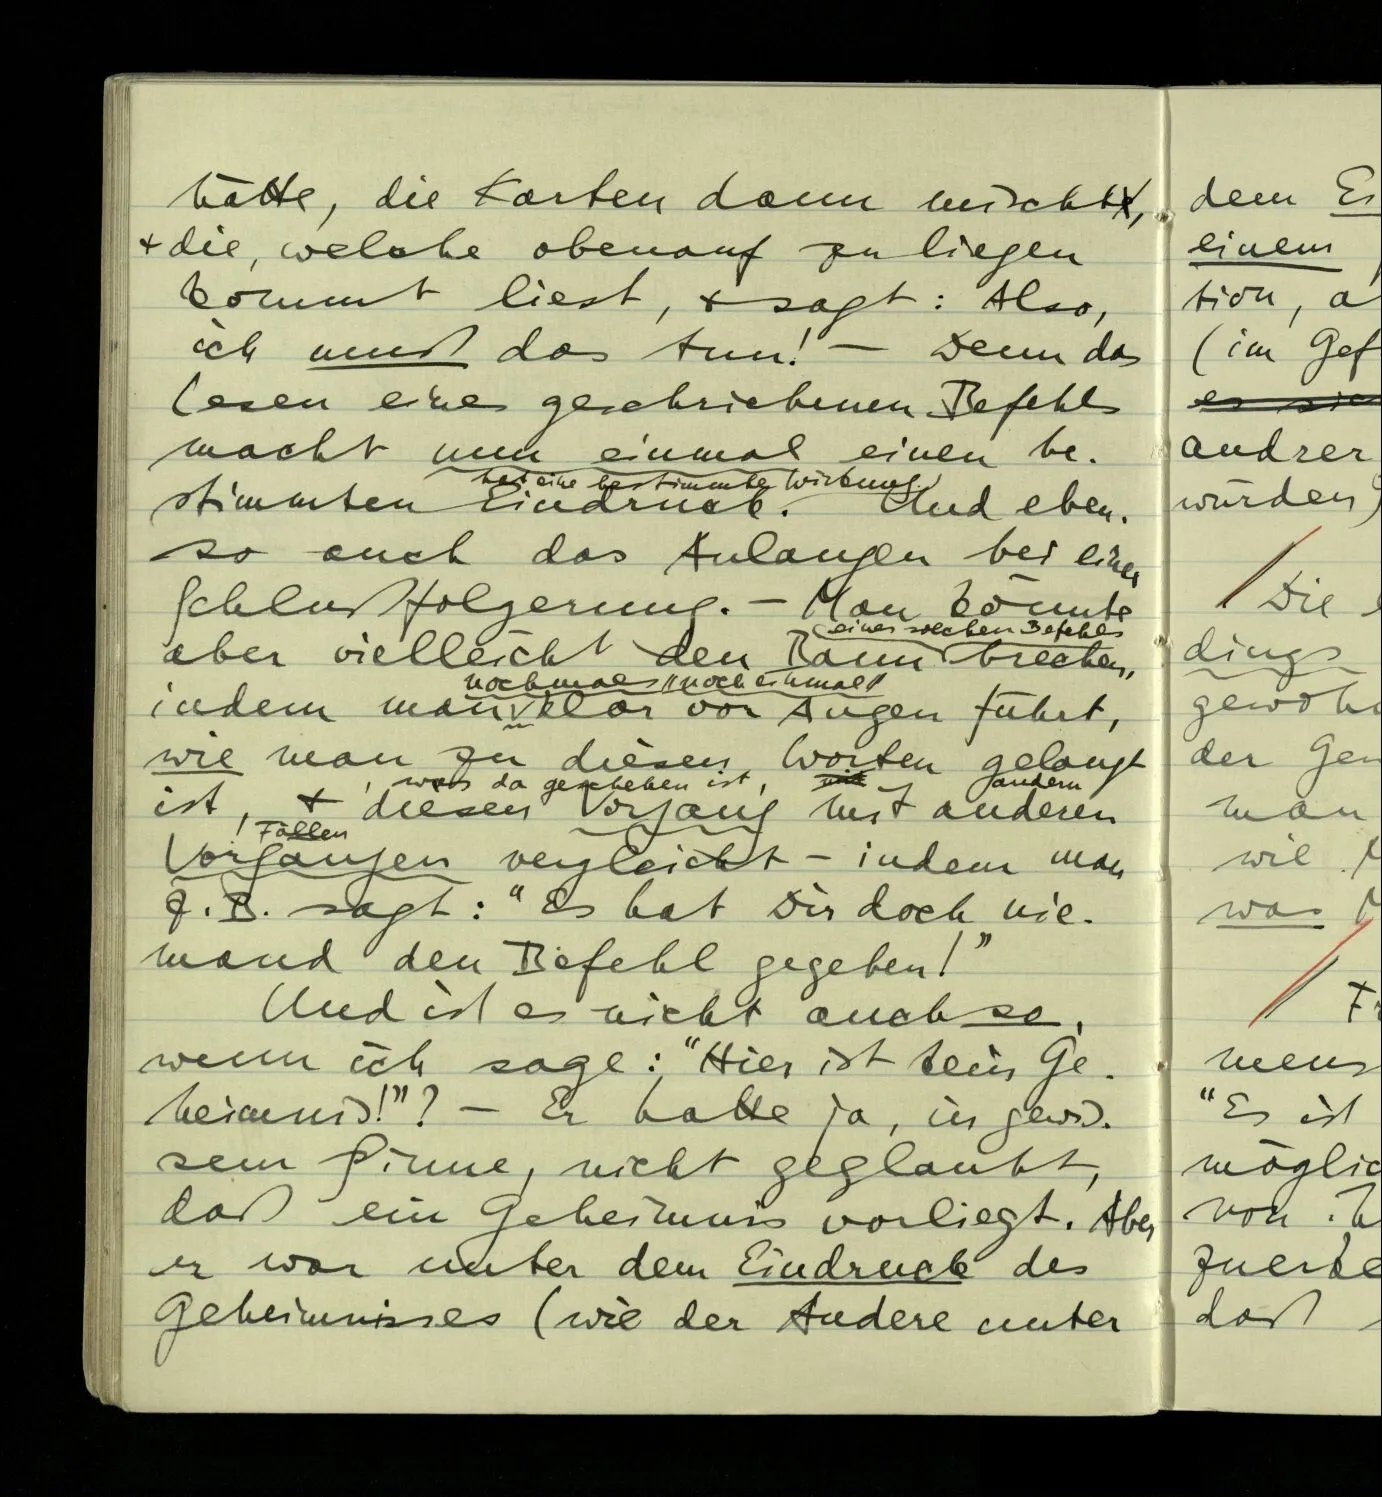 hätte, die Karten dann mischt,
+ die, welche obenauf zu liegen
kommt liest, + sagt: Also,
ich muß das tun! – Denn das
Lesen eines geschriebenen Befehls
macht nun einmal einen be-
hat eine bestimmte Wirkung
stimmten Eindruck. Und eben-
so auch das Anlangen bei einer
Schlußfolgerung. – Man könnte
eines solchen Befehls
aber vielleicht den Bann brechen,
nochmals "noch einmal"
indem man klar vor Augen führt,
wie man zu diesen Worten gelangt
was da geschehen ist, mit andern
ist, + diesen Vorgang mit anderen
Fällen
Vorgängen vergleicht – indem man
z.B. sagt: "Es hat Dir doch nie-
mand den Befehl gegeben!"
Und ist es nicht auch so,
wenn ich sage: "Hier ist kein Ge-
heimnis!"? – Er hatte ja, in gewis-
sem Sinne, nicht geglaubt,
daß ein Geheimnis vorliegt. Aber
er war unter dem Eindruck des
Geheimnisses (wie der Andere unter
dem
einem
tion, a
(im Gef
es sie
andrer
würden)
Die
dings
gewöhn
der Gen
man
wie
was
mens
"Es ist
möglic
von
zuerke
daß